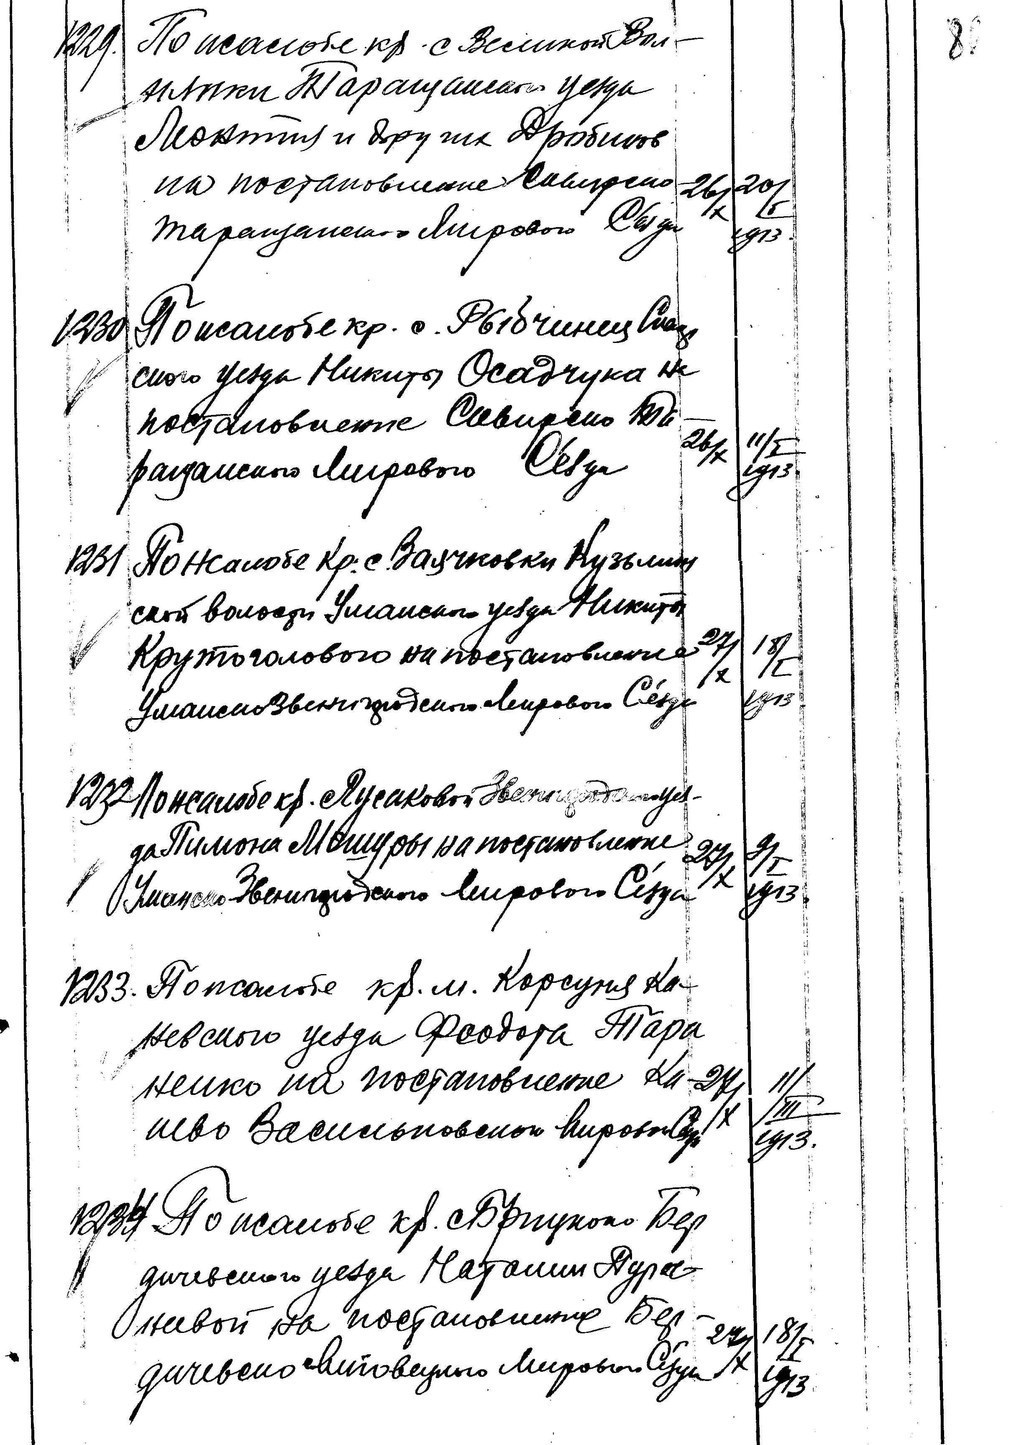 1229. По жалобе кр. с Великой Вол-
Таращанского уезда
и других
на постановление Сквирско 26/X 20/I
Таращанского Мирового Съезда 1913.
1230 По жалобе кр. с. Рыбчинец Сквир
ского уезда Никиты Осадчука на
постановление Сквирско Та-
ращанского Мирового Съезда 26/X 11/I 1913.
1231 По жалобе Кр. с. Заячковки Кузьмин
ской волости Уманского уезда Никиты
Крутоголового на постановление 27/X 18/I
Уманско Звенигородского Мирового Съезда 1913
1232 По жалобе кр. Лусаковой Звенигородского уез-
да Пимона Мошуры на постановление 27/X 9/I
Уманско Звенигородского Мирового Съезда 1913.
1233. По жалобе кр. м. Корсуня Ка-
невского уезда Феодота Тара
ненко на постановление Ка- 27/X 11/III
нево Васильковского Мирового Съез 1913.
1234 По жалобе кр. с Бер
дичевского уезда Наталии
на постановление Бер-
дичевско Липовецкого Мирового Съезда 27/X 18/I 1913